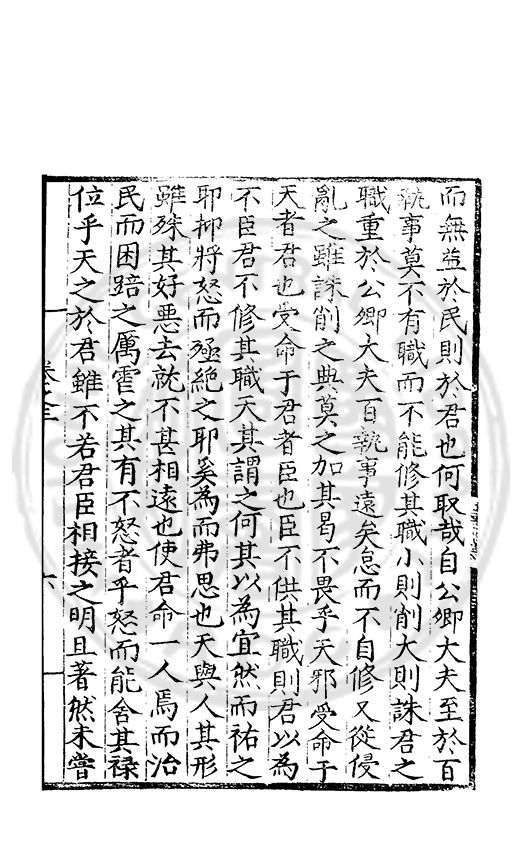 而無益於民則於君也何取哉自公卿大夫至於百
執事莫不有職而不能修其職小則削大則誅君之
職重於公卿大夫百執事遠矣怠而不自修又從侵
亂之雖誅削之典莫之加其曷不畏乎天邪受命于
天者君也受命于君者臣也臣不供其職則君以為
不臣君不修其職天其謂之何其以為宜然而祐之
耶抑將怒而殛絶之耶奚為而弗思也天與人其形
雖殊其好惡去就不甚相遠也使君命一人焉而治
民而困踣之厲霍之其有不怒者乎怒而能舍其祿
位乎天之於君雖不若君臣相接之明且著然未嘗
卷之三
六